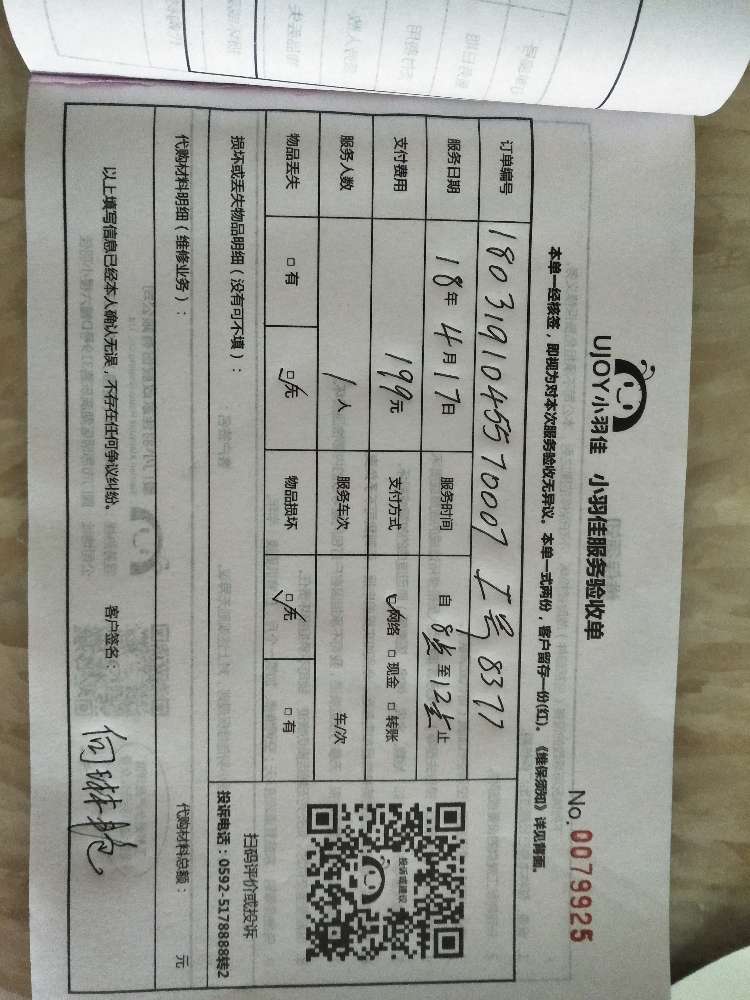 UJOY小羽佳 小羽佳服务验收单
No. 0079925
本单一经核签，即视为对本次服务验收无异议。本单一式两份，客户留存一份(红)。《维保须知》详见背面。
订单编号 1803191045570007 工号8377
服务日期 18年4月17日 服务时间 自8点至12点止
支付费用 199元 支付方式 ☑网络 □现金 □转账
服务人数 1人 服务车次 车/次
物品丢失 □有 ☑无 物品损坏 ☑无 □有
扫码评价或投诉
投诉电话：0592-5178888转2
投诉或建议
损坏或丢失物品明细（没有可不填）：
代购材料明细（维修业务）： 代购材料总额： 元
以上填写信息已经本人确认无误，不存在任何争议纠纷。 客户签名：